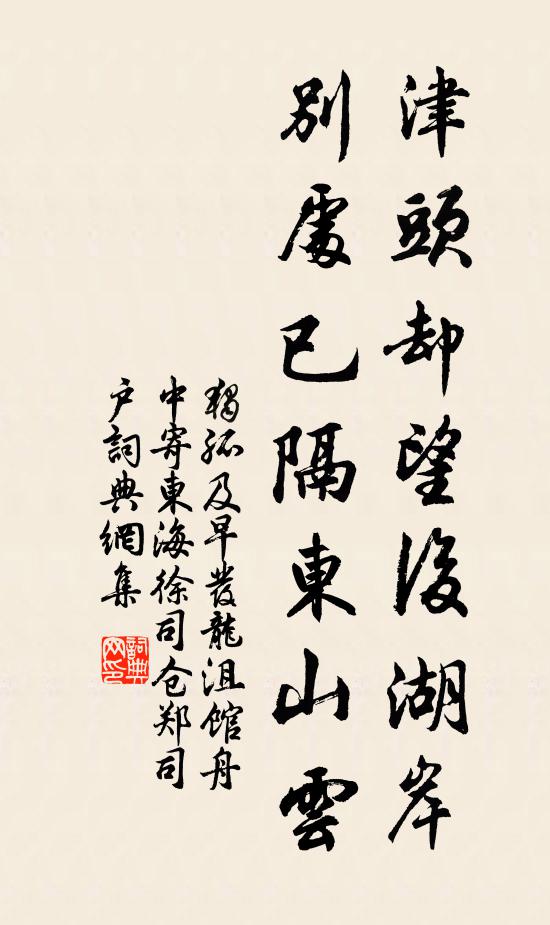 津頭却望後湖岸
別處已隔東山雲
獨孤及早發龍沮館舟
中寄東海徐司仓郑司
户詞典網集
詞典
网